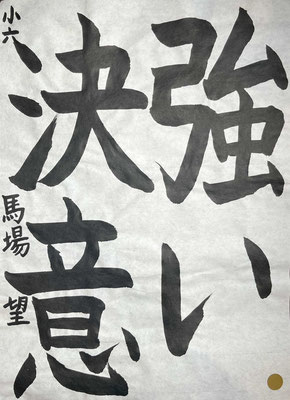 強い
決意
小六 馬場 望